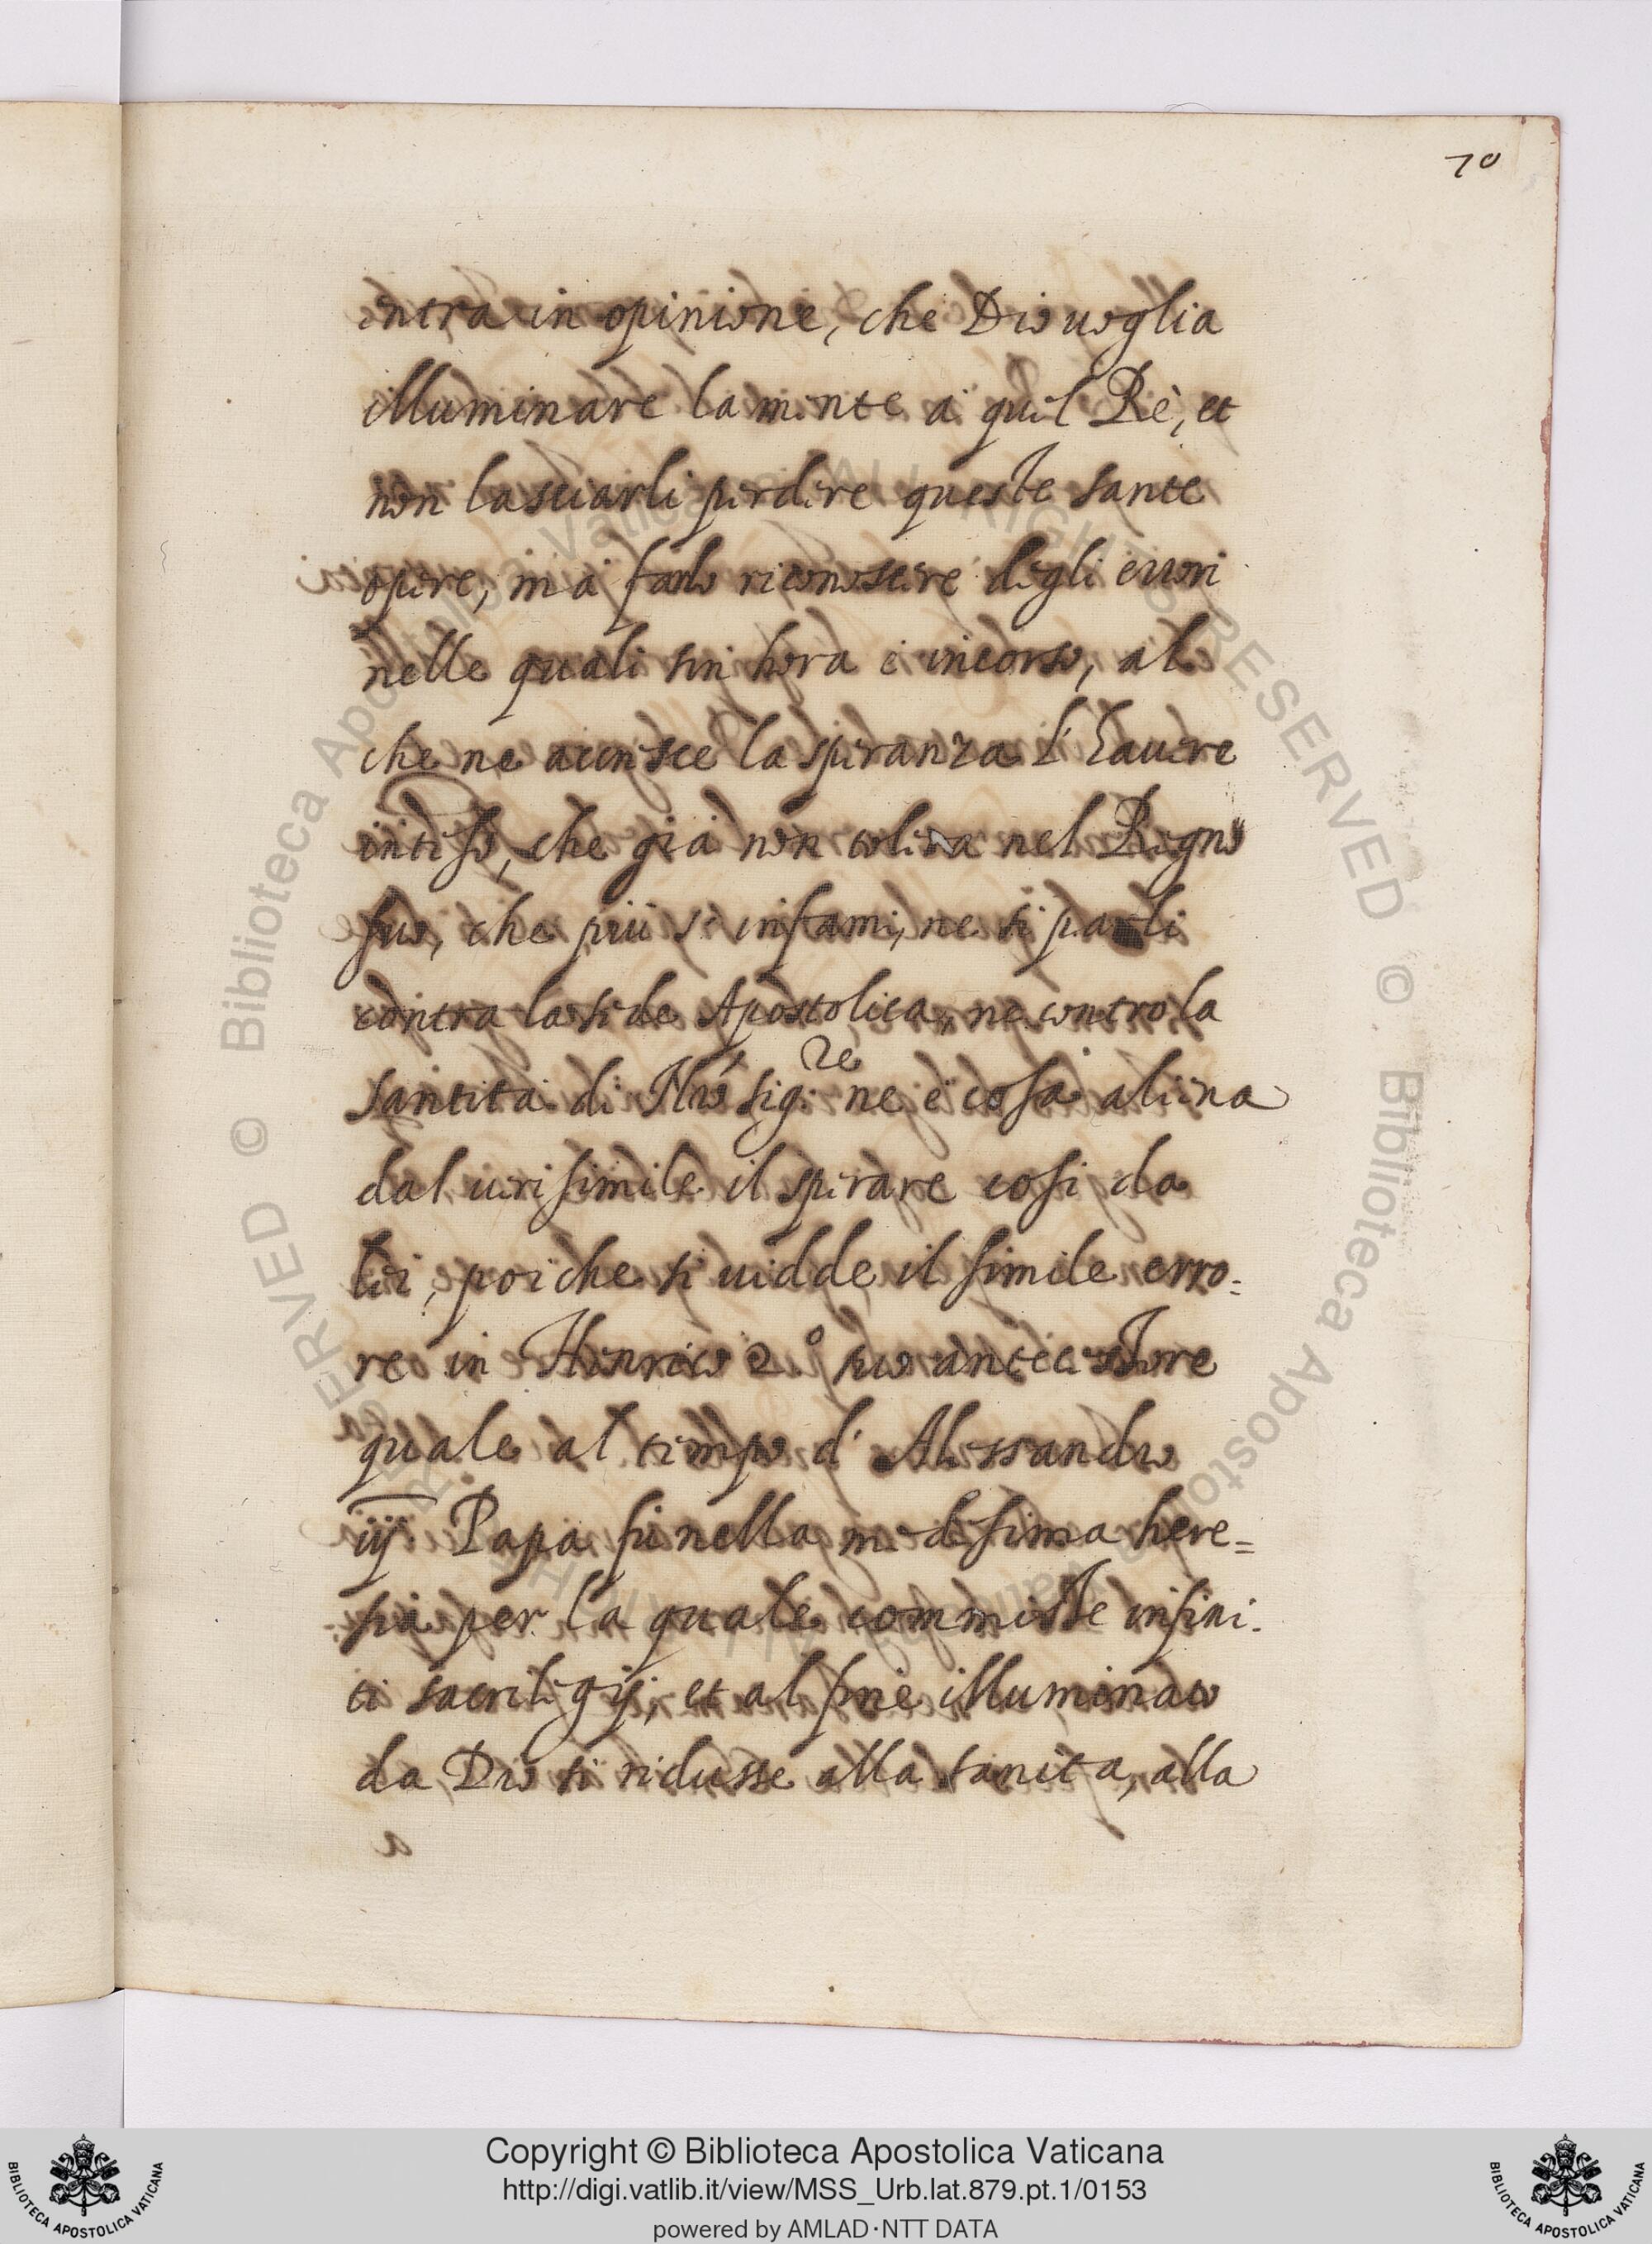 70
entra in opinione, che Dio uoglia
illuminare la mente à quel Rè, et
non lasciarli perdere queste sante
opere, mà farlo riconoscere degli errori
nelle quali sin hora è incorso, al
che ne accresce la speranza l'hauere
inteso, che già non tolera nel Regno
suo, che più s'infami, ne si parli
contra la sede Apostolica, ne contro la
santità di Nro sig.re ne è cosa aliena
dal uerisimile il sperare cosi da
lui, poiche si uidde il simile erro=
re in Henrico 2.º suo antecessore
quale al tempo d'Alessandro
iij Papa fù nella medesima here=
sia per la quale commisse infini=
ti sacrilegij, et al fine illuminato
da Dio si ridusse alla sanità, alla
© Biblioteca Apostolica Vaticana ALL RIGHTS RESERVED
Copyright © Biblioteca Apostolica Vaticana
http://digi.vatlib.it/view/MSS_Urb.lat.879.pt.1/0153
powered by AMLAD·NTT DATA
BIBLIOTECA APOSTOLICA VATICANA
BIBLIOTECA APOSTOLICA VATICANA